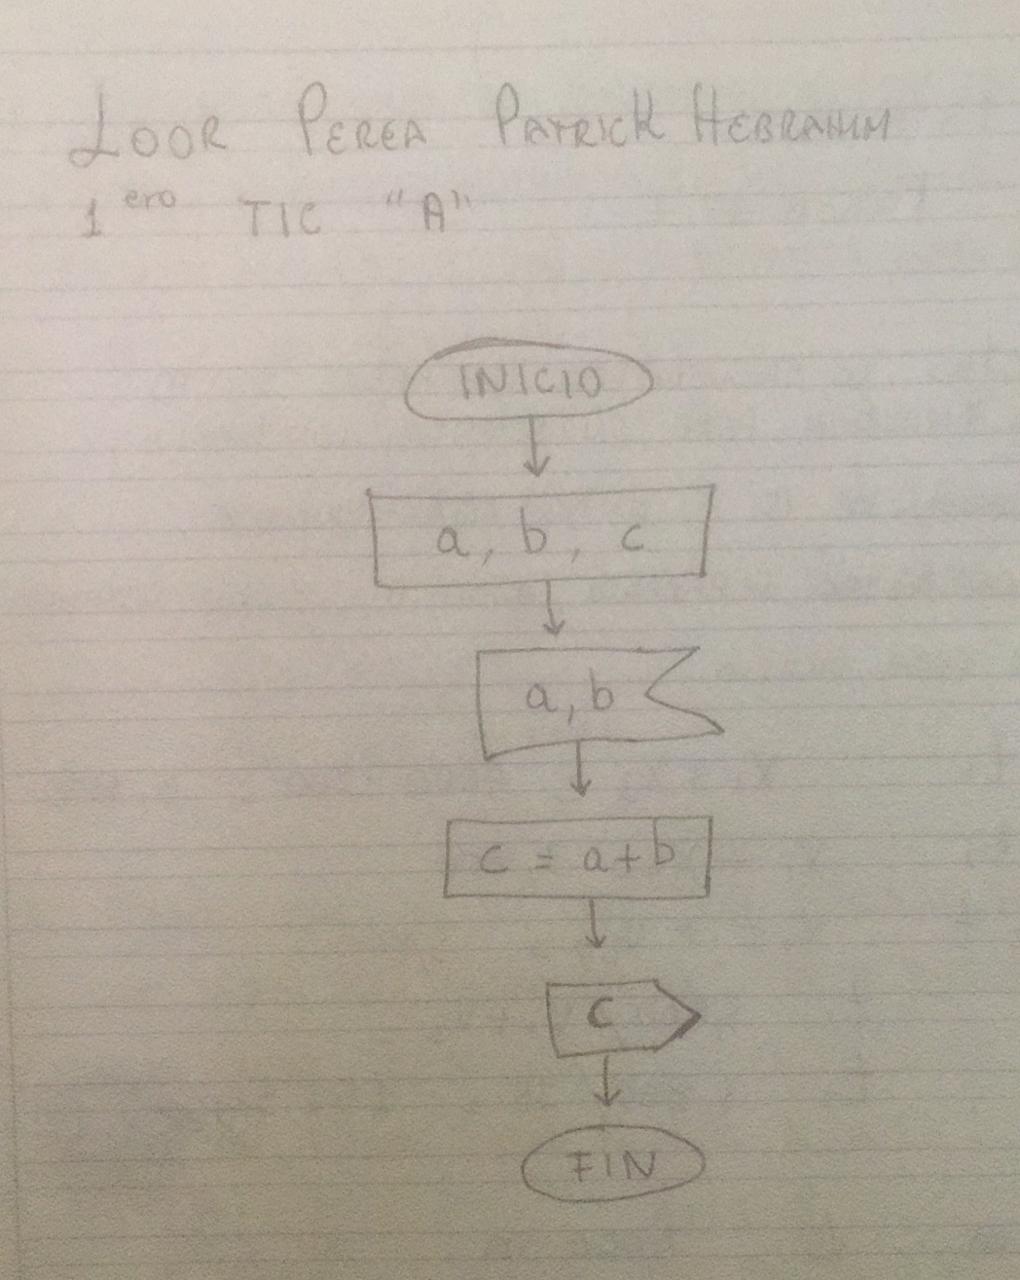 LOOR PEREA PATRICK HEBRAHIM
1ero TIC "A"
INICIO
a, b, c
a, b
c = a+b
c
FIN